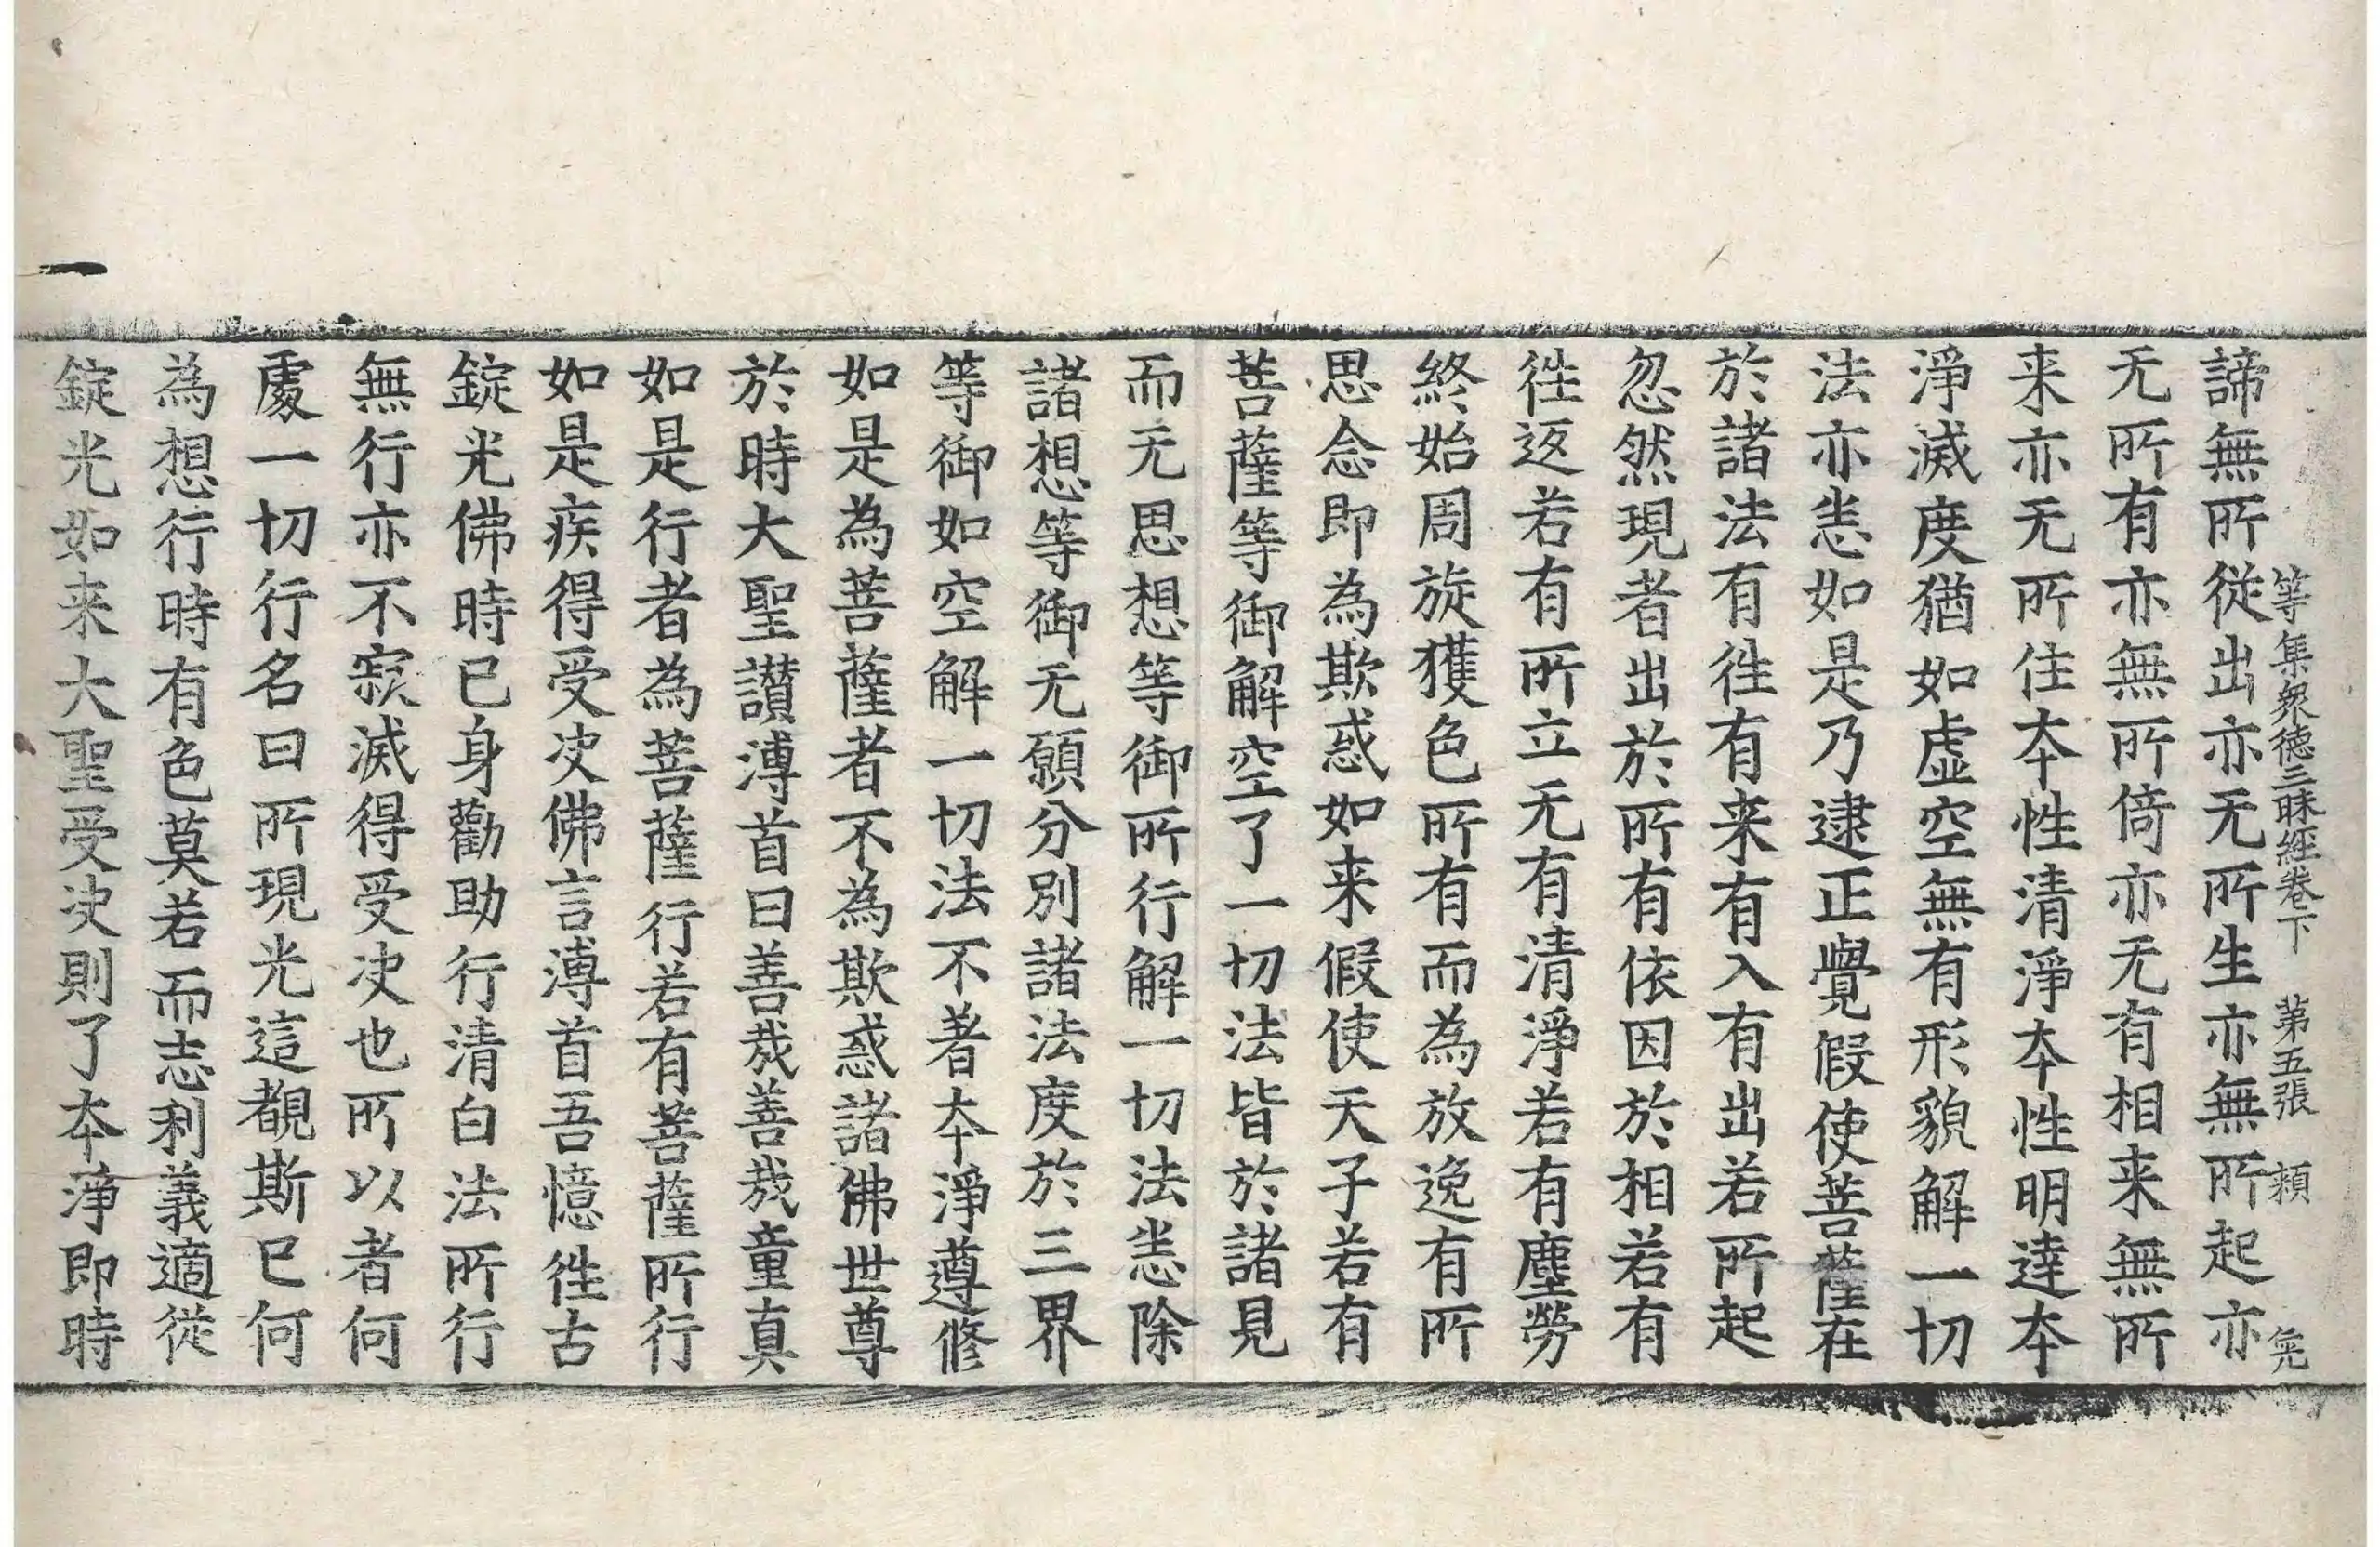 等集衆德三昧經卷下　第五張　頼　羌
諦無所從出亦无所生亦無所起亦
无所有亦無所倚亦无有相来無所
来亦无所住夲性清淨夲性明達夲
淨滅度猶如虛空無有形貌解一切
法亦悉如是乃逮正覺假使菩薩在
於諸法有徃有来有入有出若所起
忽然現者出於所有依因於相若有
徃返若有所立无有清淨若有塵勞
終始周旋獲色所有而為放逸有所
思念即為欺惑如来假使天子若有
菩薩等御解空了一切法皆於諸見
而无思想等御所行解一切法悉除
諸想等御无願分別諸法度於三界
等御如空解一切法不著夲淨遵修
如是為菩薩者不為欺惑諸佛世尊
於時大聖讃溥首曰善哉善哉童真
如是行者為菩薩行若有菩薩所行
如是疾得受决佛言溥首吾憶徃古
錠光佛時已身勸助行清白法所行
無行亦不寂滅得受决也所以者何
處一切行名曰所現光這覩斯已何
為想行時有色莫若而志利義適從
錠光如来大聖受决則了夲淨即時